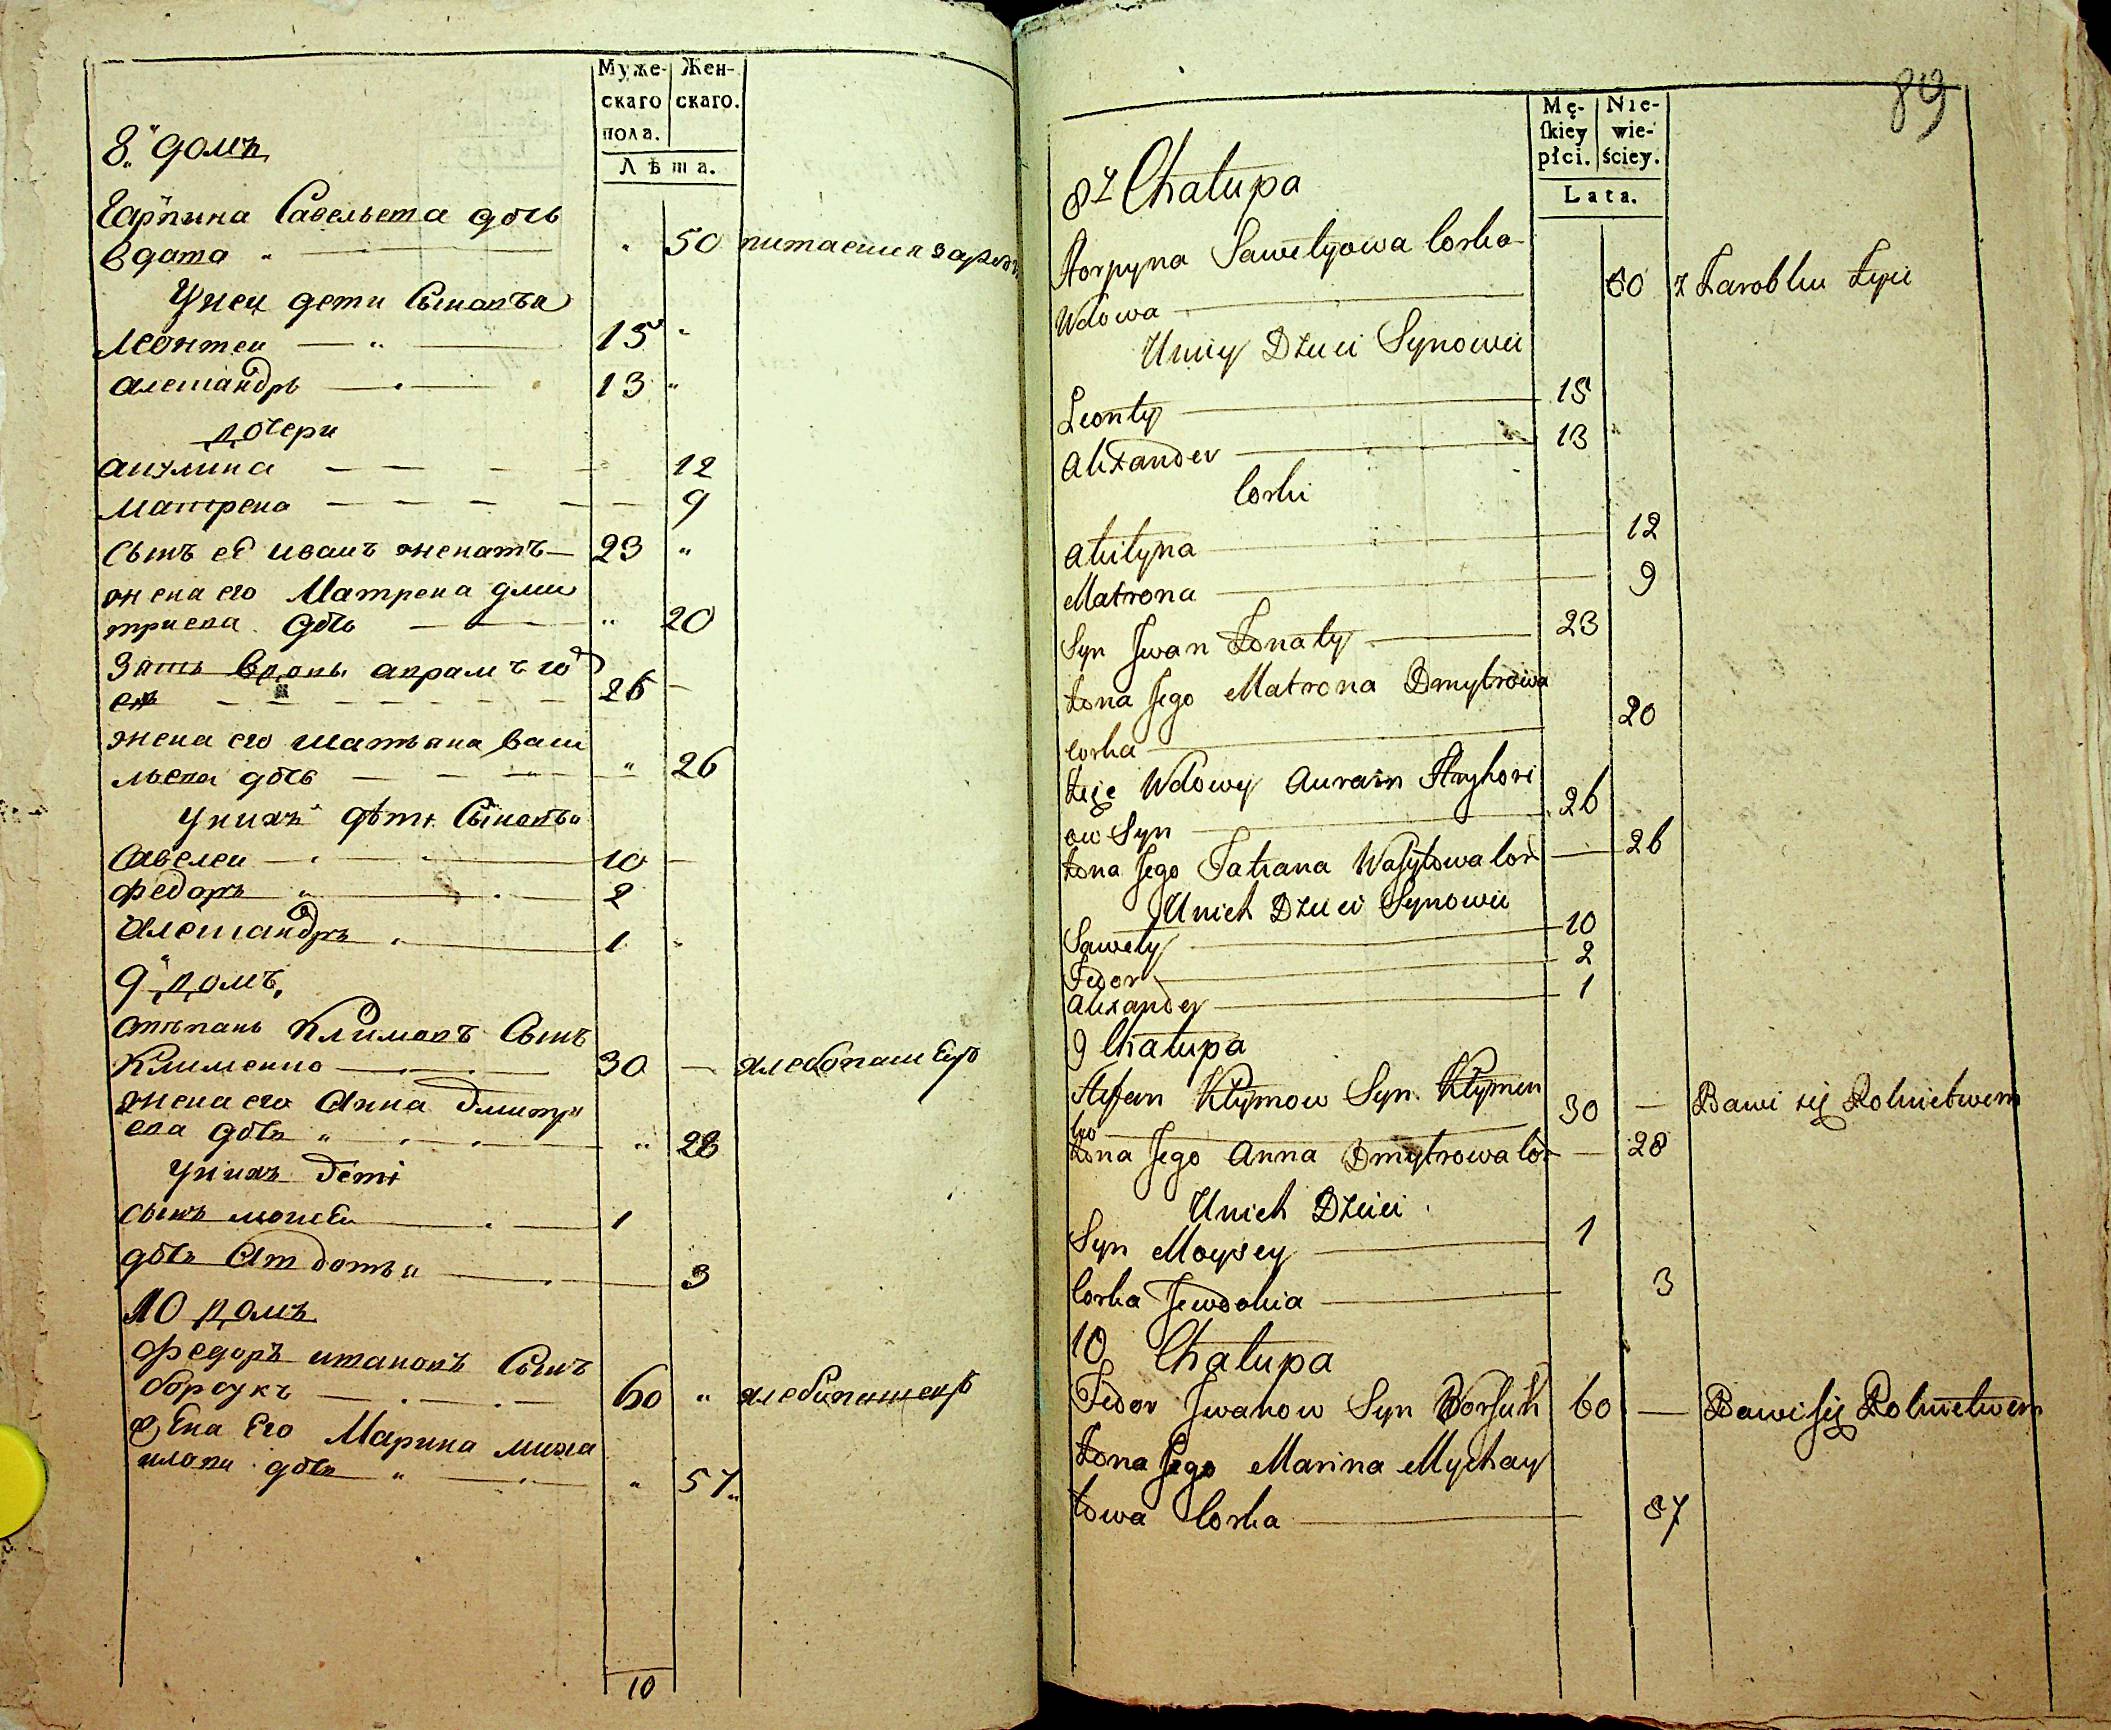 Муже-
скаго
пола.
Жен-
скаго.
Лѣта.
8. домъ
Гарпина Савельева дочь
вдова 50
У неи дети Сыновья
Леонтеи 15
александръ 13
дочери
акулина 12
Матрена 9
Сынъ её иванъ женатъ 23
жена его Матрена дми
триева дочь 20
Зять вдовы аврамъ
26
жена его татьяна васи
льева дочь 26
У нихъ дѣти Сыновья
Савелеи 10
Федоръ 2
Александръ 1
9 домъ
Степанъ Климовъ Сынъ
Клименко 30 хлебопашецъ
жена его Анна Дмитри
ева дочь 28
У нихъ дети
Сынъ моисеи 1
дочь 3
10 домъ
Федоръ ивановъ Сынъ
борсукъ 60 хлебопашецъ
жена Его Марина миха
илова дочь 57
10
89
Mę-
skiey
płci.
Nie-
wie-
ściey.
Lata.
8 Chałupa
Horpyna Sawelyowa Corka
Wdowa 50 z Zarobku żyie
U niey Dzieci Synowie
Leonty 15
Alexander 13
Corki
Akulyna 12
Matrona 9
Syn Jwan Żonaty 23
Żona Jego Matrona Dmytrowa
Corka 20
Zięć Wdowy Auram Hryhori
ow Syn 26
Żona Jego Tatiana Wasylowa Cor 26
U nich Dzieci Synowie
Sawely 10
Fedor 2
Alexander 1
9 Chałupa
Stefan Kłymow Syn Kłymen
ko 30 — Bawi się Rolnictwem
Żona Jego Anna Dmytrowa Cór — 28
U nich Dzieci
Syn Moysey 1
Corka Jewdokia 3
10 Chałupa
Fedor Jwanow Syn Borsuk 60 — Bawi się Rolnictwem
Żona Jego Marina Mychay
łowa Corka 57